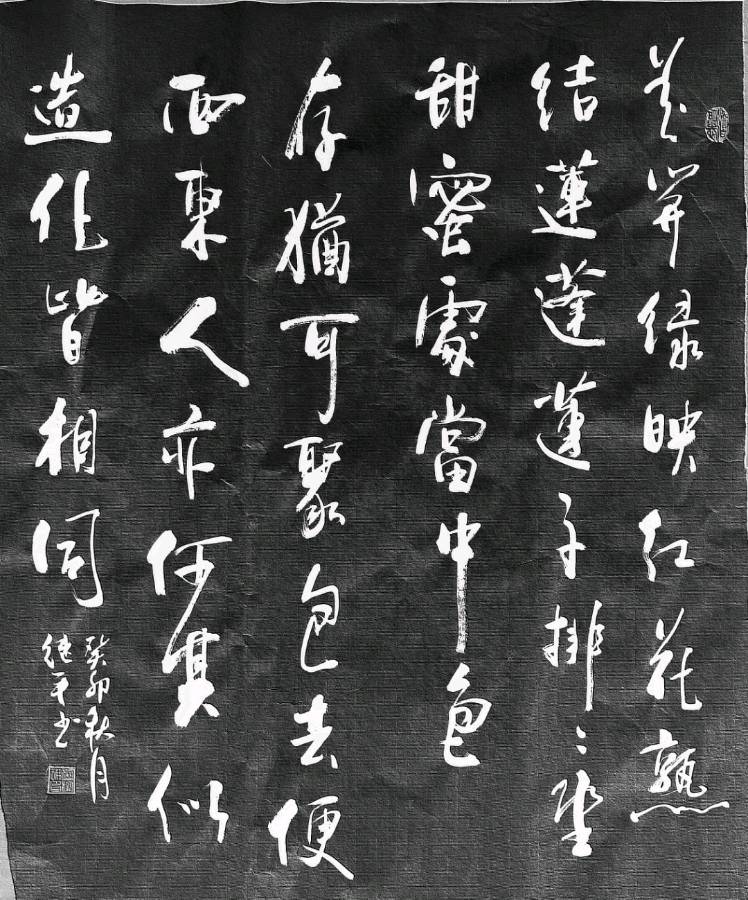 花開綠映紅花熟
結蓮蓬蓮子排〻坐
甜蜜處當中包
存猶可聚包去便
西東人亦何其似
造化皆相同
癸卯秋月
继平书